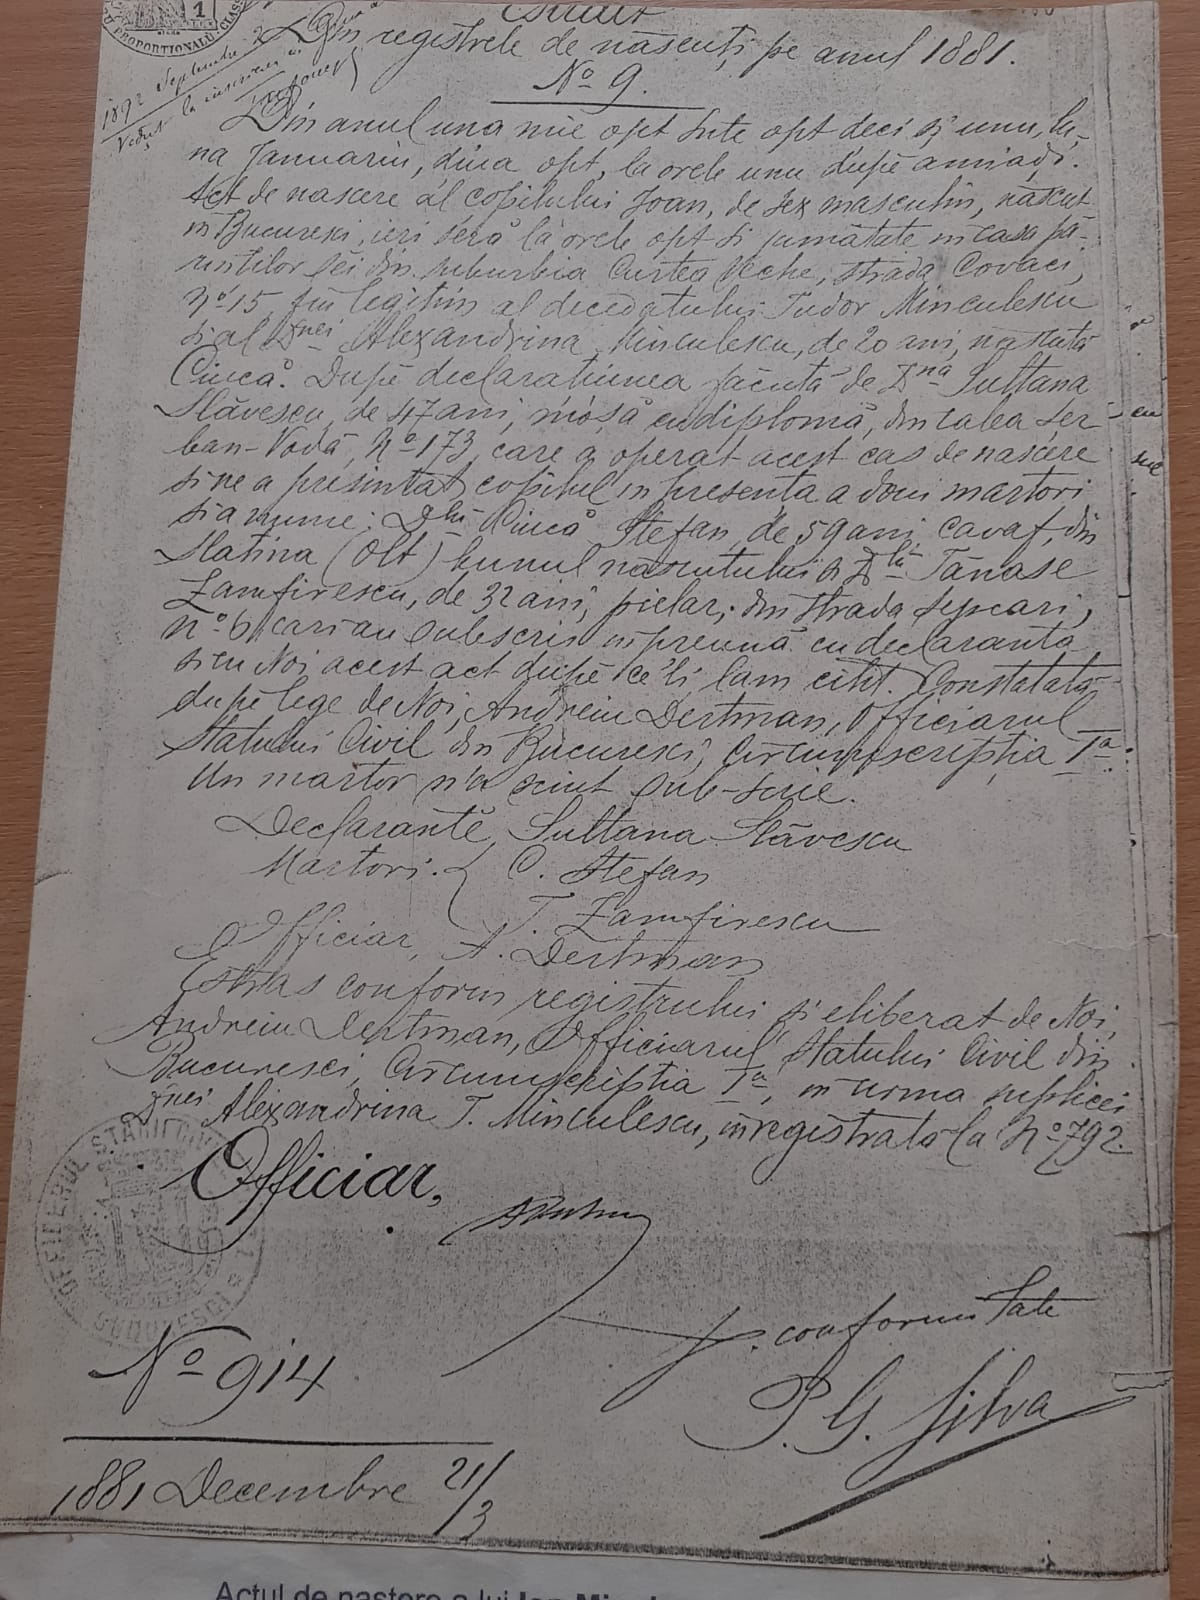 1
PROPORTIONALU
1892 Septembre 2
Vedut la inscrierea
Estract
Din registrele de născuți pe anul 1881.
Nº 9.
Din anul una mie opt sute opt deci și unu, lu-
na Januariu, diua opt, la orele unu dupe amiadi.
Act de nascere al copilului Joan, de sex masculin, născut
in Bucuresci, ieri séra la orele opt si jumătate in casa pă-
rinților séi din suburbia Curtea Veche, strada Covaci,
Nº 15, fiu legitim al decedatului Tudor Minculescu
si al Dnei Alexandrina Minculescu, de 20 ani, născută
Ciucă. Dupe declarațiunea făcută de Dna Sultana
Slăvescu, de 47 ani, móșă cu diplomă, din calea Șer-
ban-Vodă, Nº 173, care a operat acest cas de nascere
si ne a presintat copilul in presenta a doui martori
si anume: Dlui Ciucă Stefan, de 59 ani, cavaf, din
Slatina (Olt) bunul născutului si Dlu Tănase
Zamfirescu, de 32 ani, pielar, din strada Șepcari,
Nº 6, cari au subscris impreună cu declaranta
si cu Noi acest act dupe ce li l'am citit. Constatată
dupe lege de Noi, Andreiu Dertman, Officiarul
Statului Civil din Bucuresci, Circumscripția Iª.
Un martor n'a sciut sub-scrie.
Declarantă, Sultana Slăvescu
Martori. { C. Stefan
T. Zamfirescu
Officiar, A. Dertman
Estras conform registrului și eliberat de Noi,
Andreiu Dertman, Officiarul Statului Civil din
Bucuresci, Circumscripția Iª, in urma suplicei
Dnei Alexandrina T. Minculescu, inregistrată la Nº 792.
OFFICERUL STĂRII CIVILE
BUCURESCI
Officiar,
Nº 914
1881 Decembre 21/3
p. conformitate
P. G. Silva
Actul de naștere a lui Ion